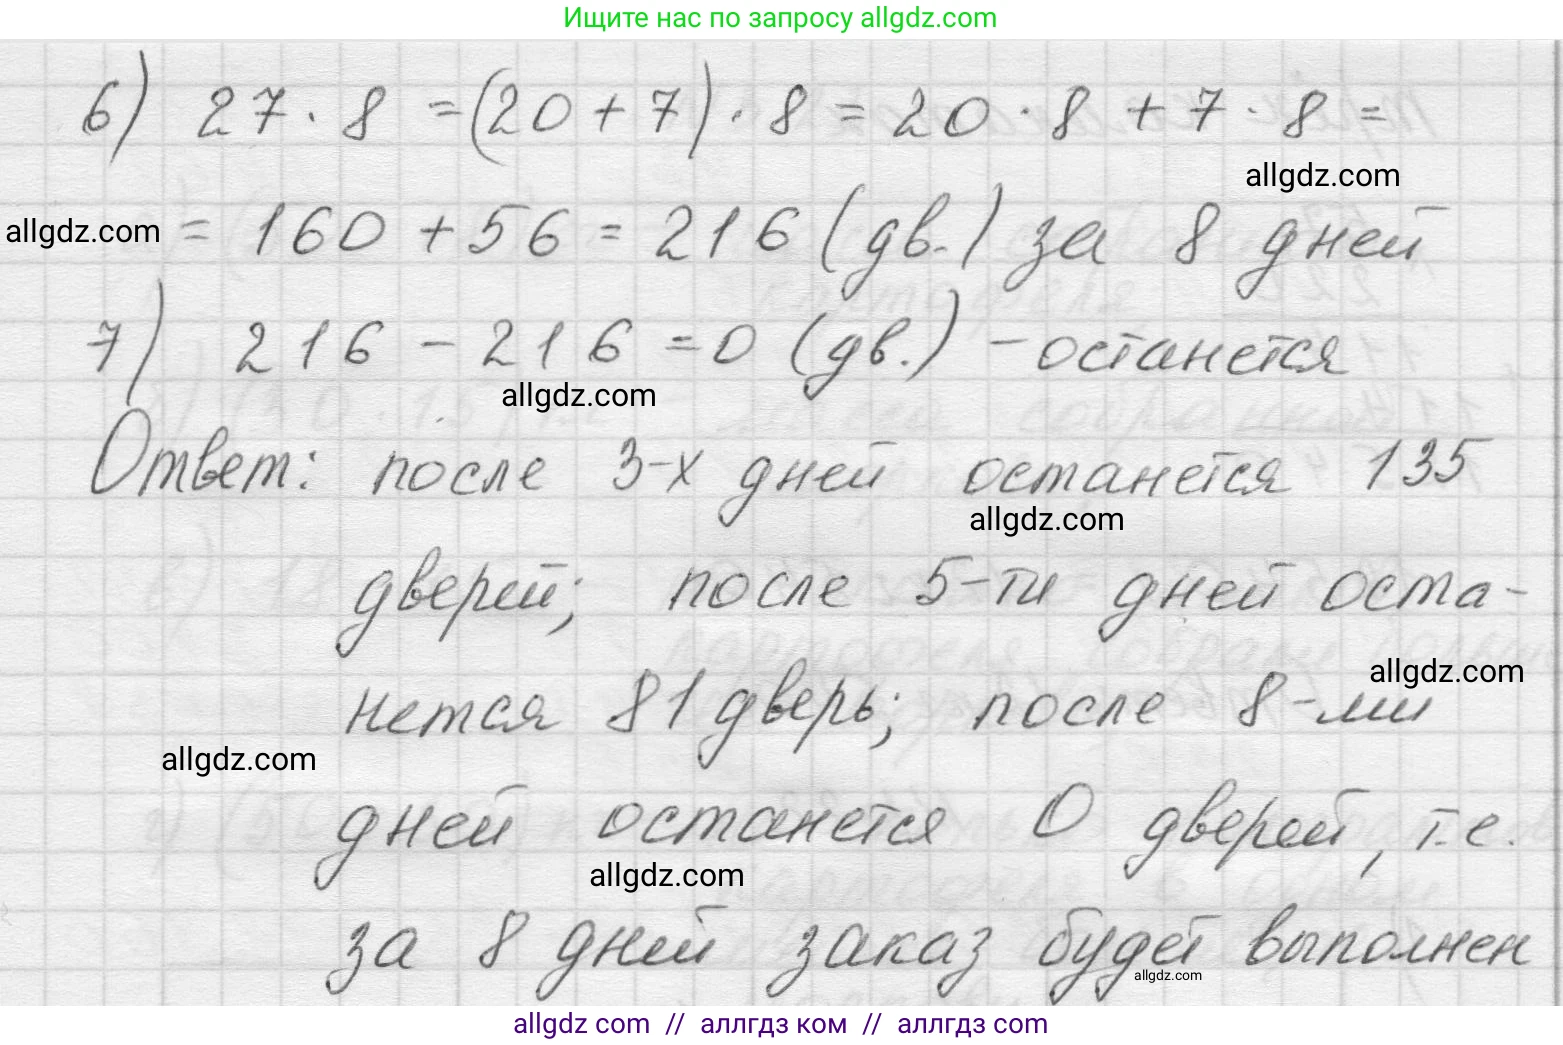 Ищите нас по запросу allgdz.com
6) 27 · 8 = (20 + 7) · 8 = 20 · 8 + 7 · 8 =
allgdz.com
allgdz.com
= 160 + 56 = 216 (дв.) за 8 дней
7) 216 - 216 = 0 (дв.) - останется
allgdz.com
Ответ: после 3-х дней останется 135
allgdz.com
дверей; после 5-ти дней оста-
allgdz.com
нется 81 дверь; после 8-ми
allgdz.com
дней останется 0 дверей, т.е.
allgdz.com
за 8 дней заказ будет выполнен
allgdz.com
allgdz com // аллгдз ком // аллгдз com